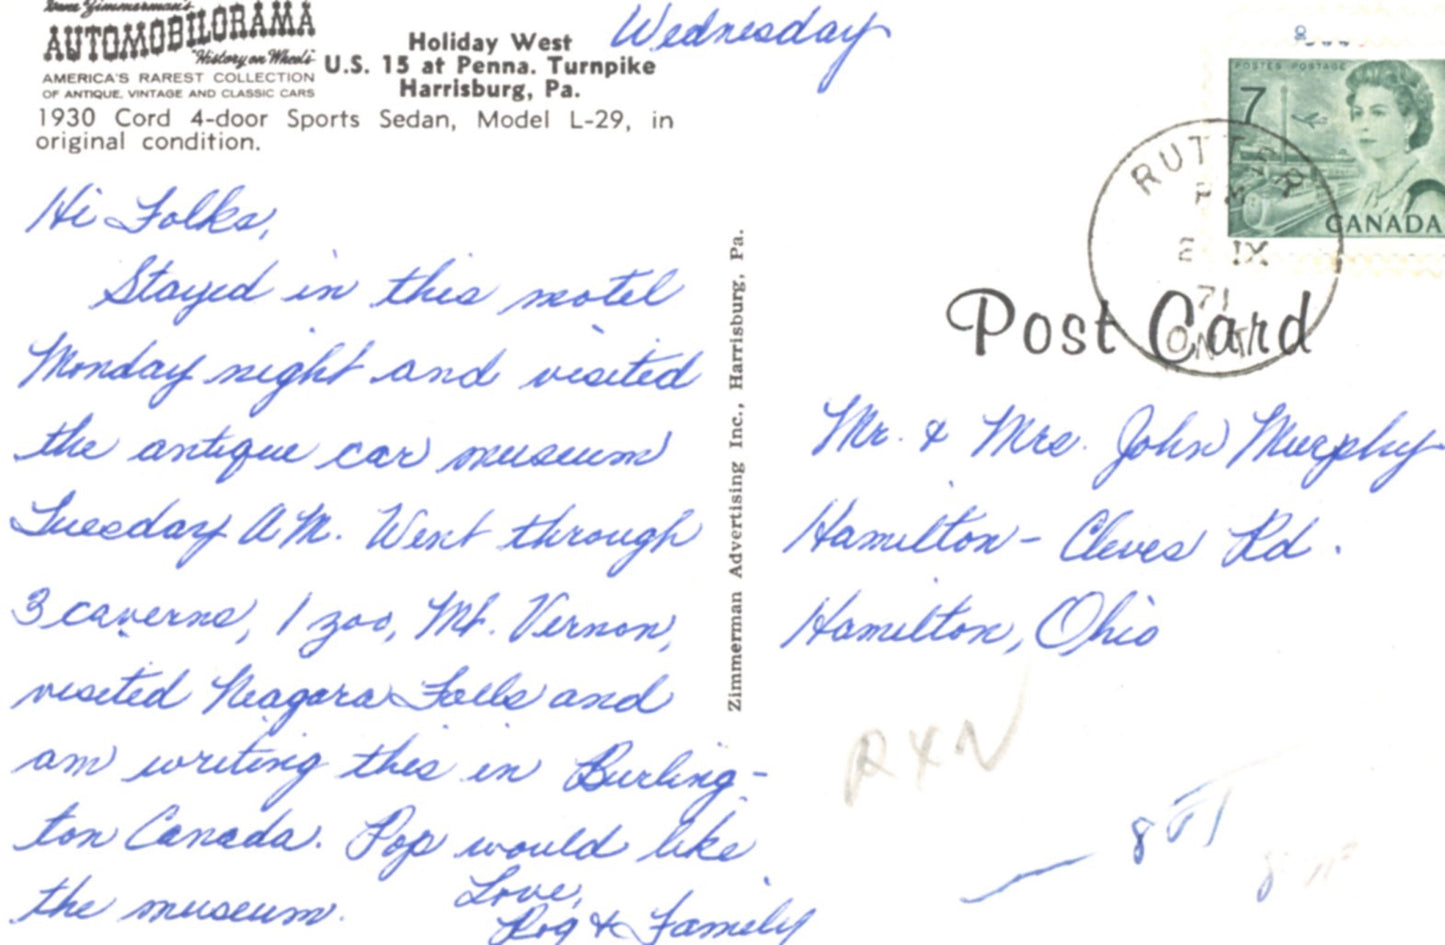 Gene Zimmerman's
AUTOMOBILORAMA
"History on Wheels"
AMERICA'S RAREST COLLECTION
OF ANTIQUE, VINTAGE AND CLASSIC CARS
Holiday West
U.S. 15 at Penna. Turnpike
Harrisburg, Pa.
1930 Cord 4-door Sports Sedan, Model L-29, in
original condition.
Wednesday
Hi Folks,
Stayed in this motel
Monday night and visited
the antique car museum
Tuesday A.M. Went through
3 caverns, 1 zoo, Mt. Vernon,
visited Niagara Falls and
am writing this in Burling-
ton Canada. Pop would like
the museum.
Love,
Rog & Family
Zimmerman Advertising Inc., Harrisburg, Pa.
POSTES POSTAGE
7
CANADA
RUTTER
PM
2 IX
71
ONT
Post Card
Mr. & Mrs. John Murphy
Hamilton-Cleves Rd.
Hamilton, Ohio
RXN